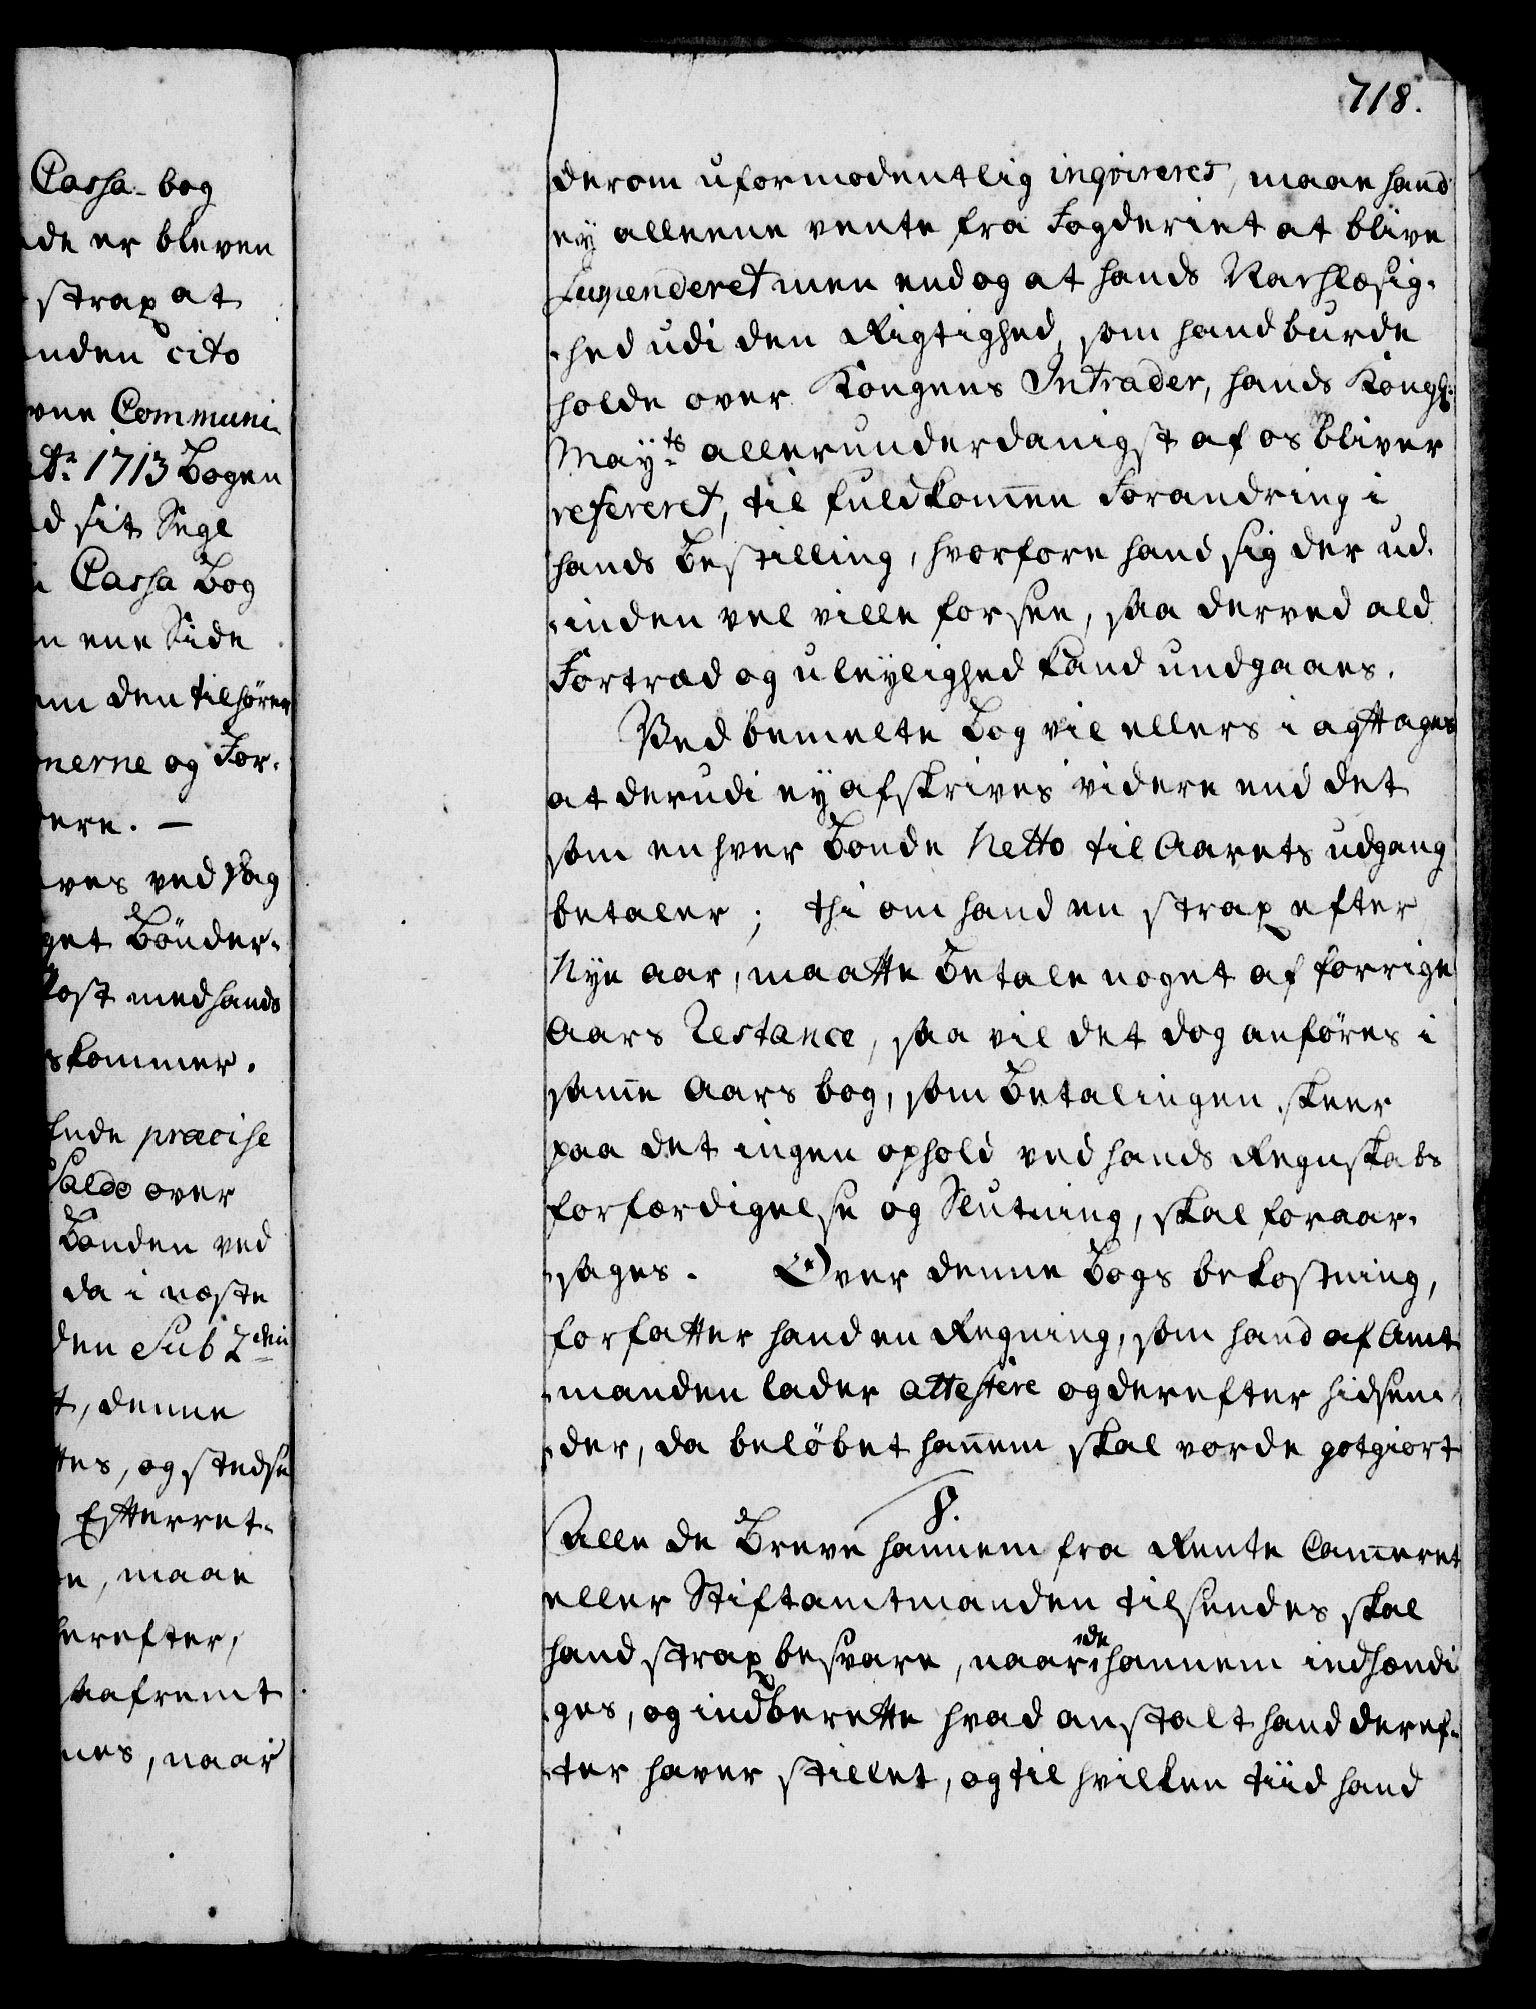 Cassa-bog
de er bleven
strax at
nden cito
vne Communi-
Ao 1713 Bogen
d sit Segl
Cassa Bog
n ene Side
m den tilhører
nerne og For-
ere. —
ves ved Sag
get Bønder-
kost med hands
kommer.
Ende præcise
Saldo over
Bonden ved
da i næste
den Sub
t, denne
tes, og stedse
Efterret-
e, maae
erefter,
aafremt
nes, naar
718.
derom uformodentlig inqvireres, maae hand
ey alleene vente fra Fogderiet at blive
Suspenderet men endog at hands Nachlæsig-
-hed udi den Rigtighed, som hand burde
holde over Kongens Intrader, hands Kongl:
Mayts allerunderdanigst af os bliver
refereret, til fuldkommen Forandring i
hands Bestilling, hvorfore hand sig der ud-
-inden vel ville forsee, saa derved ald
Fortræd og uleylighed kand undgaaes.
Ved bemelte Bog vil ellers i agttages
at derudi ey afskrives videre end det
som enhver Bonde Netto til Aarets udgang
betaler; thi om hand en strax efter
Nye Aar, maatte Betale noget af forrige
Aars Restance, saa vil det dog anføres i
samme Aars bog, som Betalingen skeer
paa det ingen ophold ved hands Regnskabs
forfærdigelse og Slutning, skal foraar-
-sages. Over denne Bogs bekostning,
forfatter hand en Regning, som hand af Amt
-manden lader attestere og derefter hidsen-
-der, da beløbet hannem skal vorde gotgiort
8.
Alle de Breve hannem fra Rente Cammeret
eller Stiftamtmanden tilsendes skal
hand strax besvare, naar de hannem indhændi
-ges, og indberette hvad anstalt hand deref-
-ter haver stillet, og til hvilken tiid hand